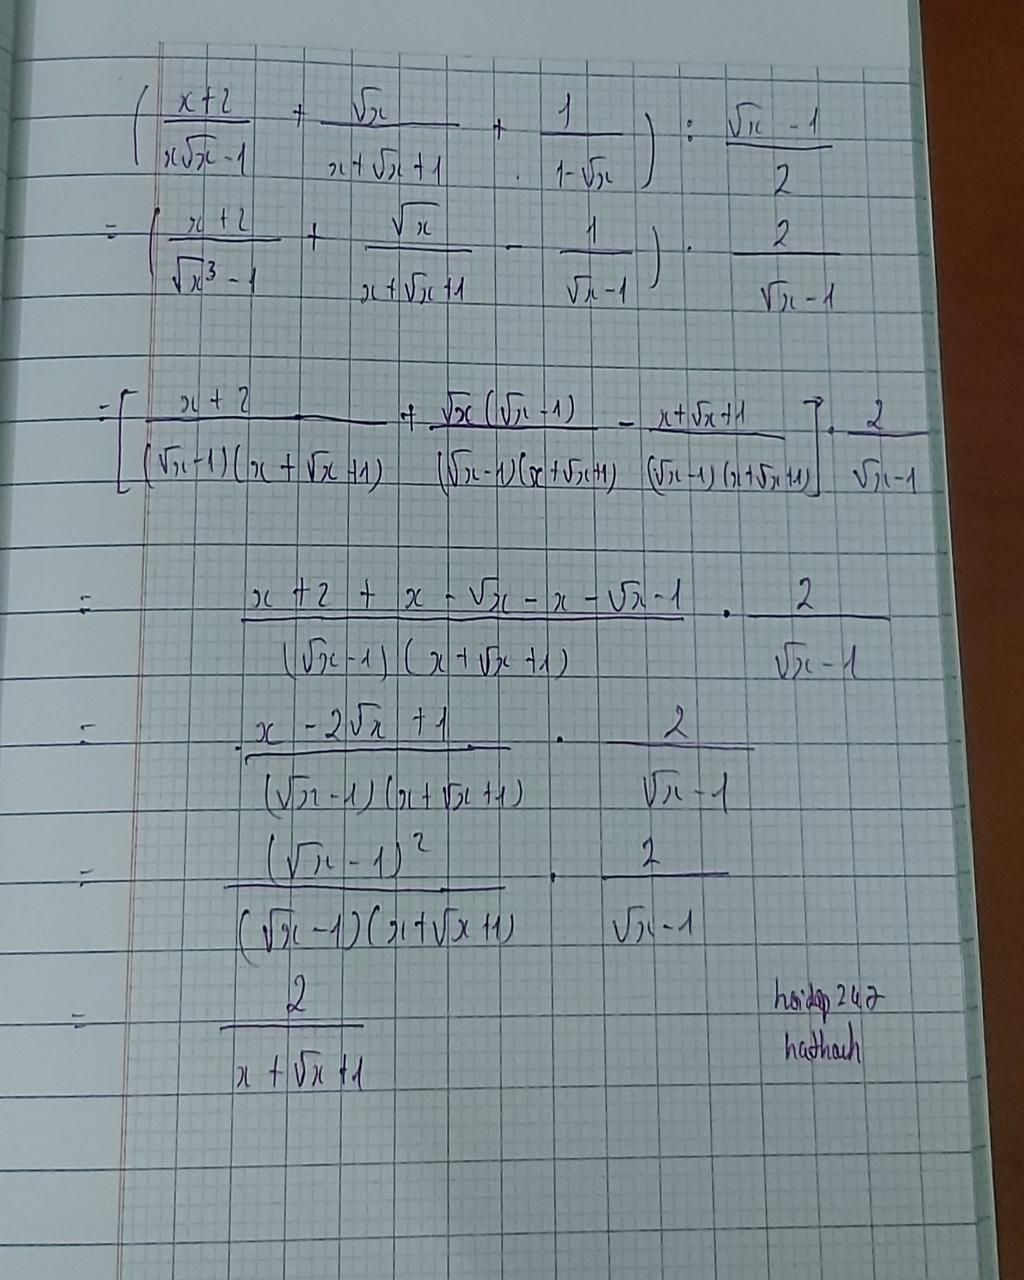 ( (x+2)/(x√x-1) + √x/(x+√x+1) + 1/(1-√x) ) : (√x-1)/2
= ( (x+2)/(√x³-1) + √x/(x+√x+1) - 1/(√x-1) ) . 2/(√x-1)
= [ (x+2)/((√x-1)(x+√x+1)) + √x(√x-1)/((√x-1)(x+√x+1)) - (x+√x+1)/((√x-1)(x+√x+1)) ] . 2/(√x-1)
= (x+2+x-√x-x-√x-1)/((√x-1)(x+√x+1)) . 2/(√x-1)
= (x-2√x+1)/((√x-1)(x+√x+1)) . 2/(√x-1)
= (√x-1)²/((√x-1)(x+√x+1)) . 2/(√x-1)
= 2/(x+√x+1)
hoidap247
hathach